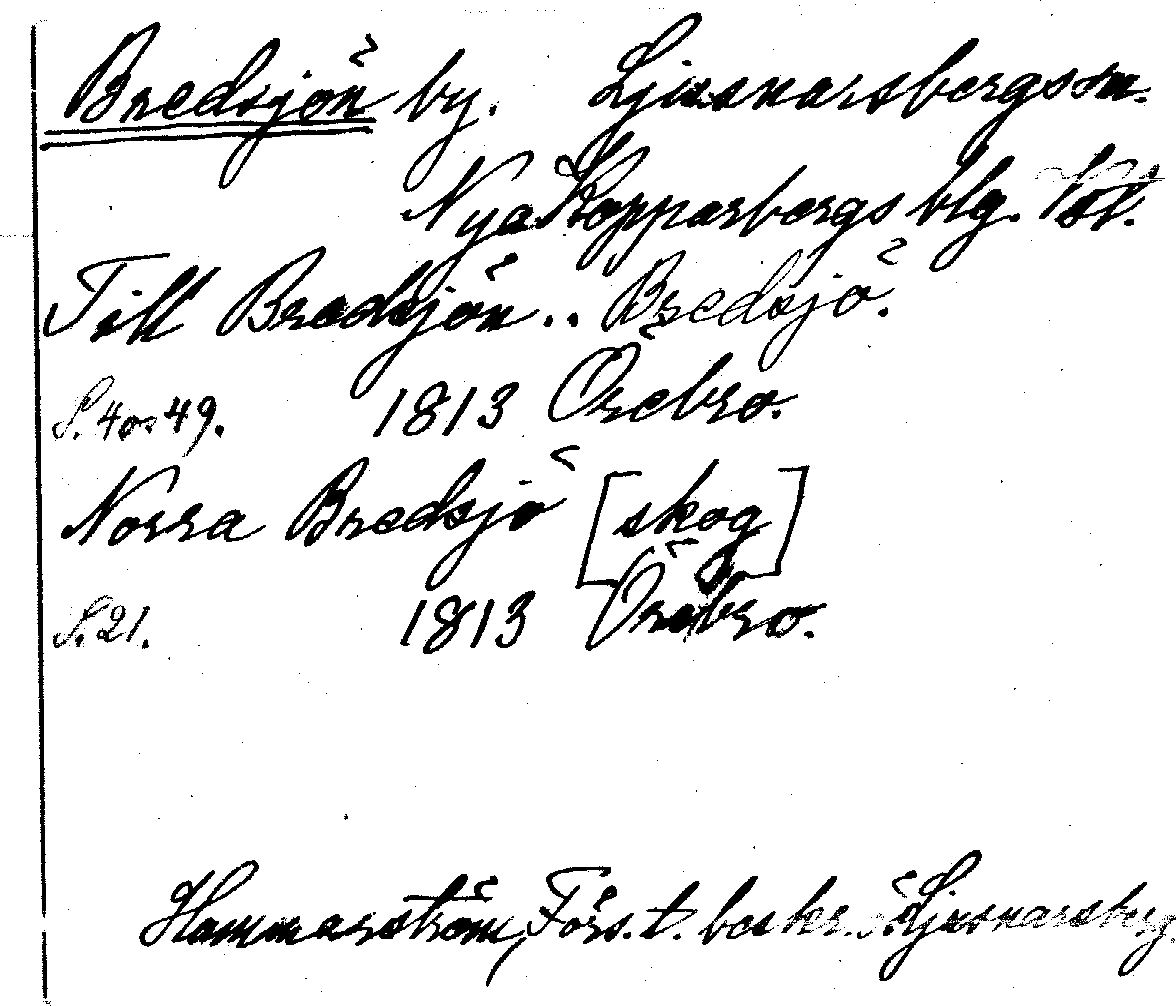 Bredsjön by. Ljusnarsbergs sn.
Nya Kopparbergs blg. Vstm.
Till Bredsjön .. Bredsjö.
S. 4 o. 49. 1813 Örebro.
Norra Bredsjö [skog]
S. 21. 1813 Örebro.
Hammarström, Förs. t. beskr. ö. Ljusnarsberg.